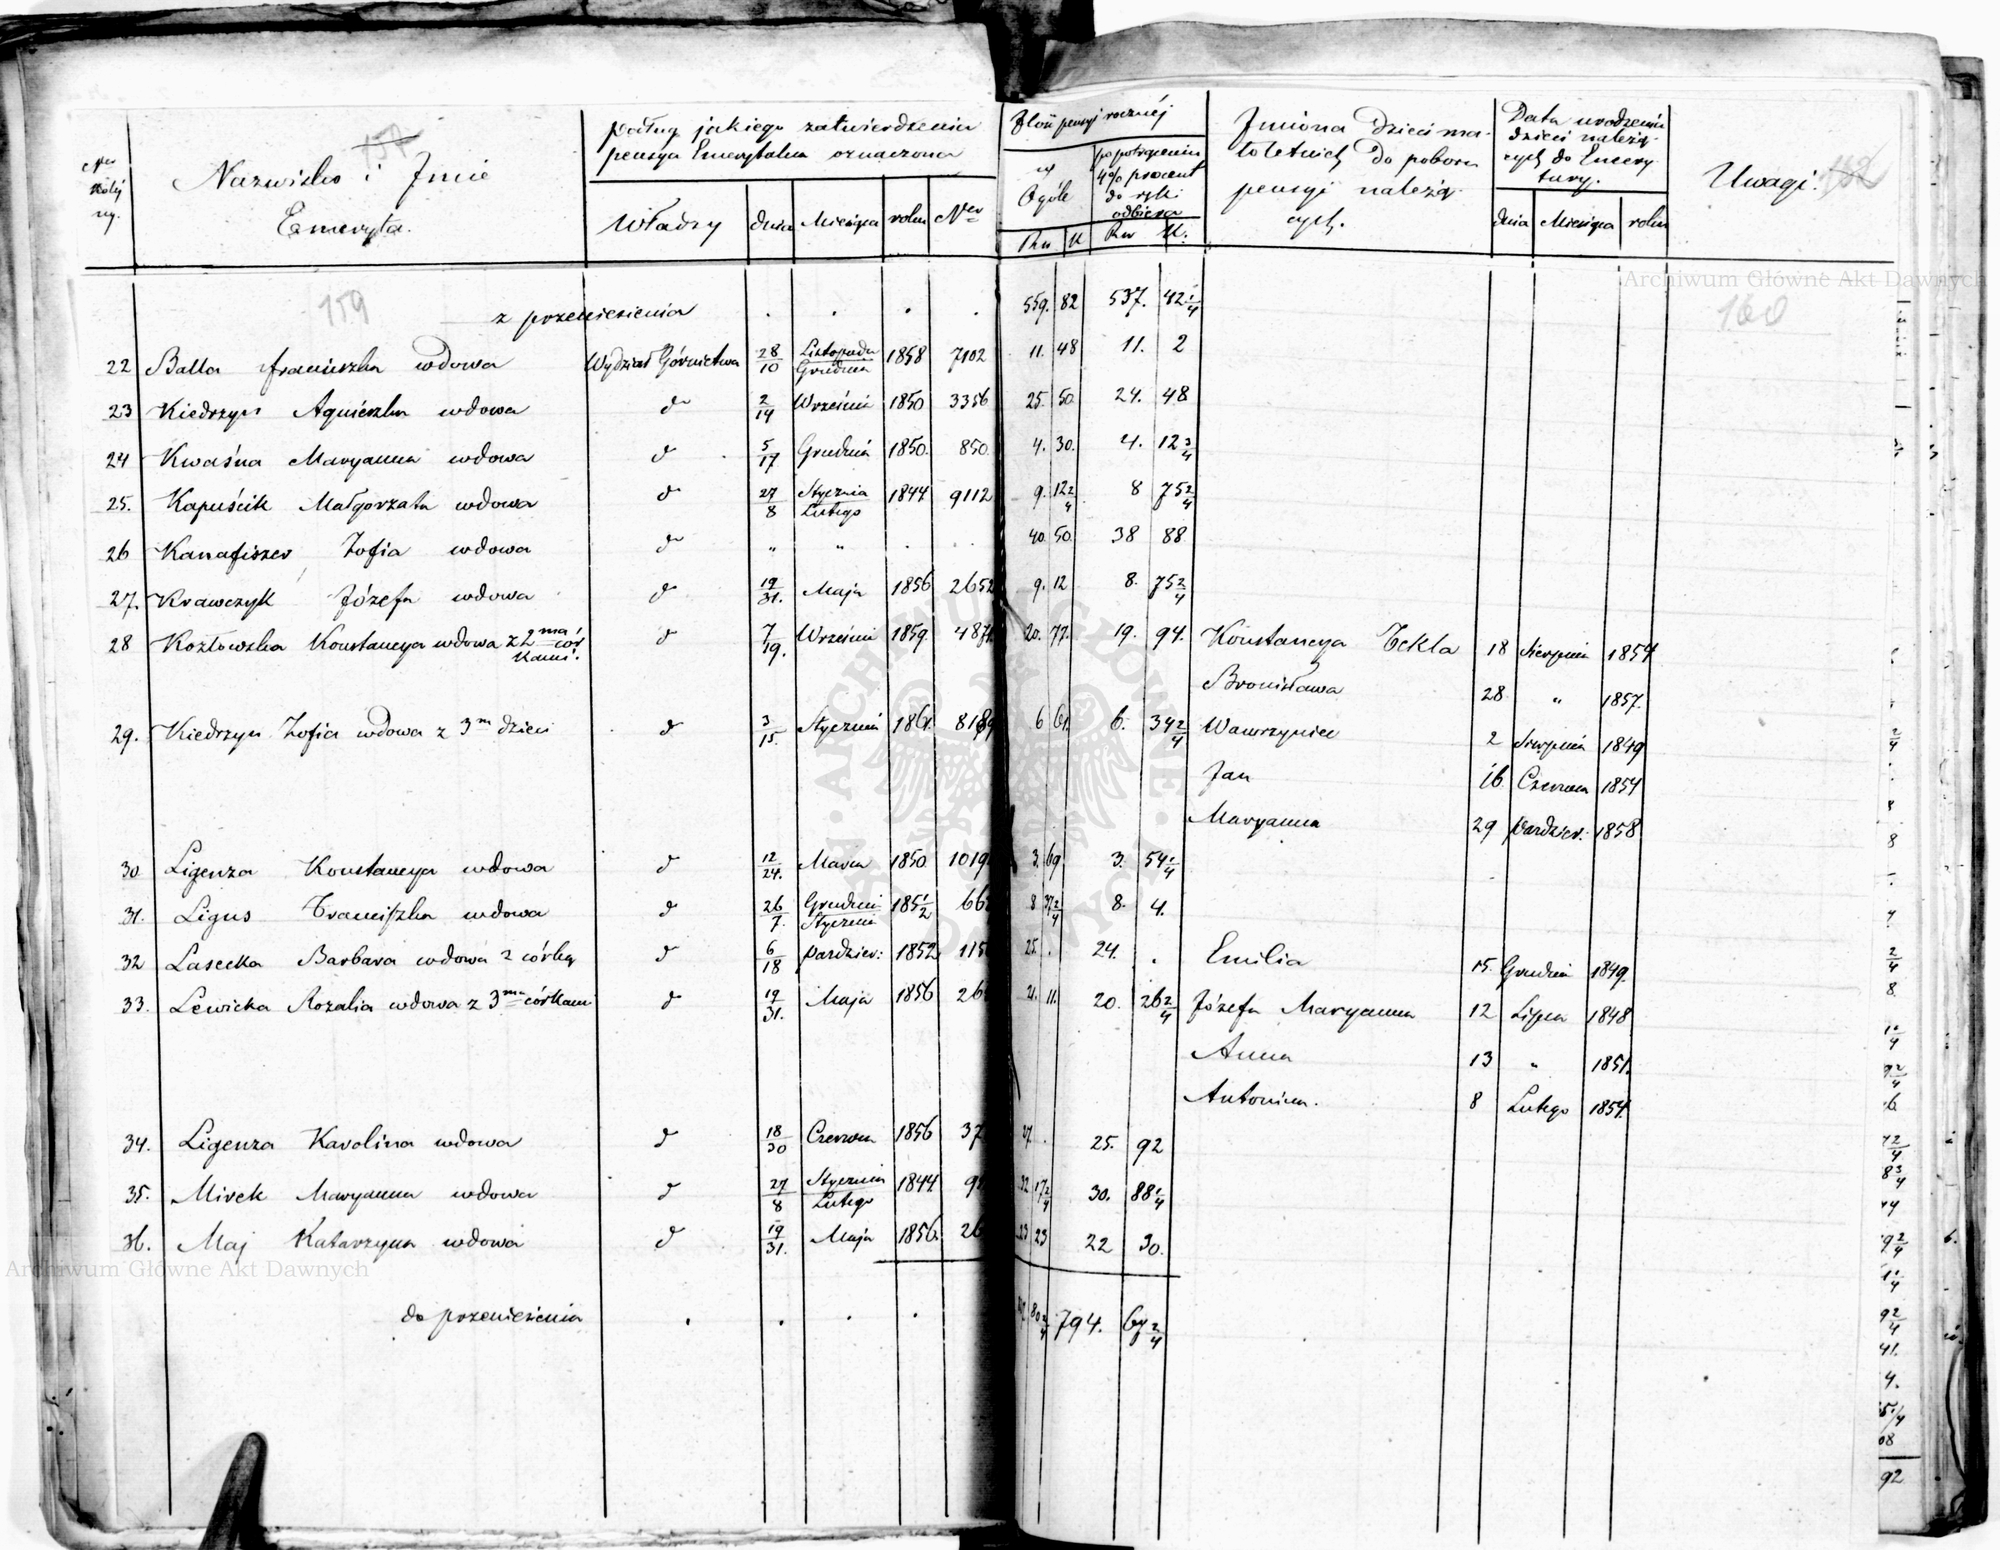 Nazwisko i Imie
Emeryta.
podług jakiego zatwierdzenia
pensya Emerytalna oznaczona
Władzy dnia Miesiąca roku Ner
Ilość pensyi rocznéj
w Ogóle
po potrąceniu
4% procent
do ręki
odbiera
Rs K Rs K.
Imiona Dzieci ma-
łoletnich do poboru
pensyi należą-
cych.
Data urodzenia
dzieci należą-
cych do Emery-
tury.
dnia Miesiąca roku
Uwagi.
159
160
z przeniesienia . . . . 559. 82 537. 42 1/4
22 Balla franciszka wdowa Wydział Górnictwa 28/10 Listopada/Grudnia 1858 7102 11. 48 11. 2
23 Kiedrzyn Agnieszka wdowa d 2/14 Wrześni 1850 3356 25. 50 24. 48
24 Kwaśna Maryanna wdowa d 5/17 Grudnia 1850. 850. 4. 30. 4. 12 3/4
25. Kapuścik Małgorzata wdowa d 27/8 Stycznia/Lutego 1844 9112 9. 12 2/4 8 75 2/4
26 Kanafiszer Zofia wdowa d " " . . 40. 50. 38 88
27. Krawczyk Józefa wdowa d 19/31. Maja 1856 2652 9. 12 8. 75 2/4
28 Kozłowska Konstancya wdowa z 2ma cór d 7/19. Wrześni 1859. 487 20. 77. 19. 94. Konstancya Tekla 18 Sierpnia 1854
kami.
Bronisława 28 " 1857.
29. Kiedrzyn Zofia wdowa z 3m dzieci d 3/15. Stycznia 1861. 8189 6 61. 6. 34 2/4 Wawrzyniec 2 Sierpnia 1849
Jan 16 Czerwca 1854
Maryanna 29 Paździer: 1858
30 Ligenza Konstancya wdowa d 12/24. Marca 1850 1019 3. 69. 3. 54 1/4
31. Ligus Franciszka wdowa d 26/7. Grudnia/Stycznia 185 1/2 66 8 37 2/4 8. 4.
32 Lasecka Barbara wdowa z córką d 6/18 Paździer: 1852. 115 25. . 24. . Emilia 15. Grudnia 1849.
33. Lewicka Rozalia wdowa z 3ma córkami d 19/31. Maja 1856 26 21. 11. 20. 26 2/4 Józefa Maryanna 12 Lipca 1848
Anna 13 " 1851.
Antonina. 8 Lutego 1854.
34. Ligenza Karolina wdowa d 18/30 Czerwca 1856 37 27. . 25. 92
35. Mirek Maryanna wdowa d 27/8 Stycznia/Lutego 1844. 9 32 17 2/4 30. 88 1/4
36. Maj Katarzyna wdowa d 19/31. Maja 1856. 26 23 23 22 30.
do przeniesienia . . . . 80 2/4 794. 64 2/4
Archiwum Główne Akt Dawnych
Archiwum Główne Akt Dawnych